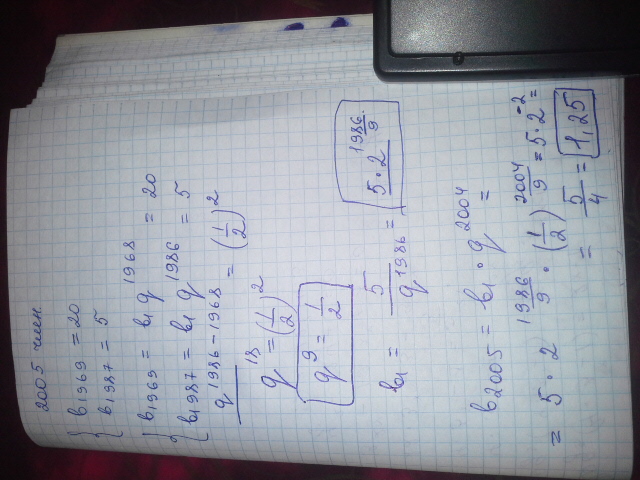 2005 член.
{ b1969 = 20
b1987 = 5
{ b1969 = b1 q^1968 = 20
b1987 = b1 q^1986 = 5
q^1986-1968 = (1/2)^2
q^18 = (1/2)^2
q^9 = 1/2
b1 = 5/q^1986 = 5·2^1986/9
b2005 = b1 · q^2004 =
= 5 · 2^1986/9 · (1/2)^2004/9 = 5·2^-2 =
= 5/4 = 1,25